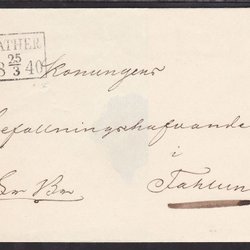 ATHER
25
3
8 40
Konungens
efallningshafvande
i
Fahlun